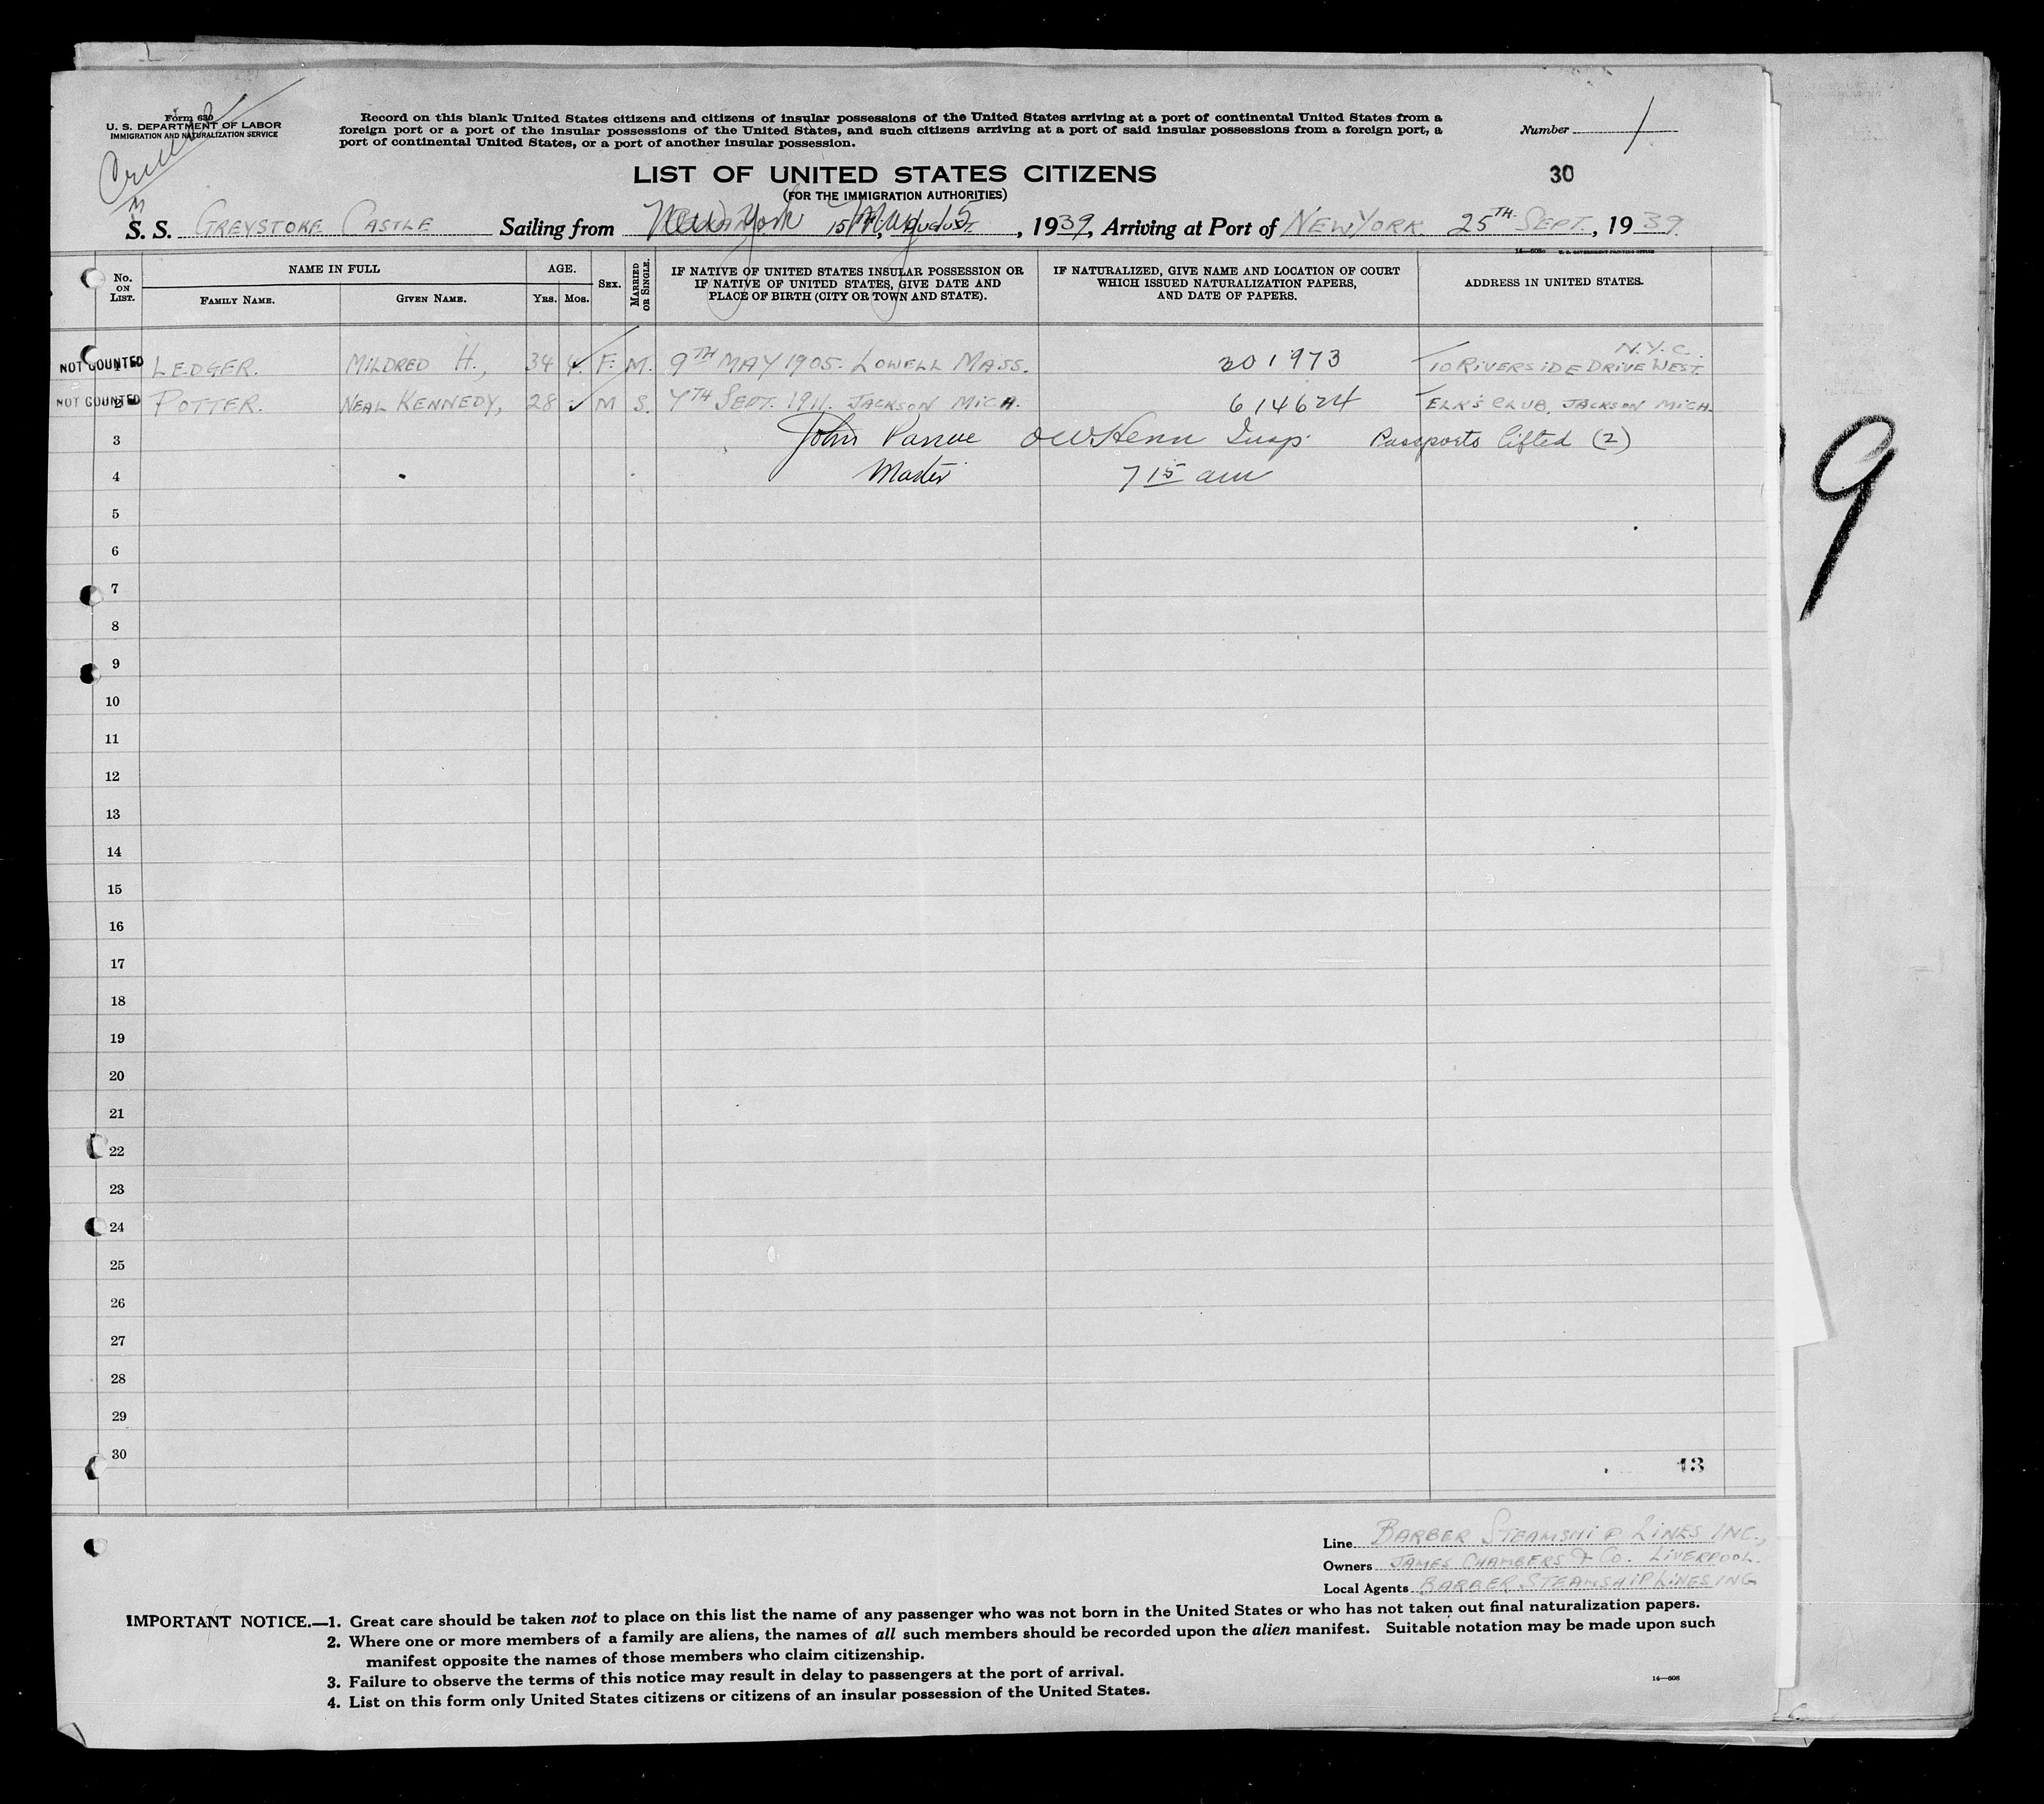 Form 630
U. S. DEPARTMENT OF LABOR
IMMIGRATION AND NATURALIZATION SERVICE
Record on this blank United States citizens and citizens of insular possessions of the United States arriving at a port of continental United States from a
foreign port or a port of the insular possessions of the United States, and such citizens arriving at a port of said insular possessions from a foreign port, a
port of continental United States, or a port of another insular possession.
Number 1
LIST OF UNITED STATES CITIZENS
30
(FOR THE IMMIGRATION AUTHORITIES)
S. S. GREYSTOKE CASTLE Sailing from New York May 15, 1939, Arriving at Port of NEW YORK 25TH SEPT., 1939.
14—608a U. S. GOVERNMENT PRINTING OFFICE
No. ON LIST.
NAME IN FULL
FAMILY NAME.
GIVEN NAME.
AGE.
YRS. MOS.
SEX.
MARRIED OR SINGLE.
IF NATIVE OF UNITED STATES INSULAR POSSESSION OR
IF NATIVE OF UNITED STATES, GIVE DATE AND
PLACE OF BIRTH (CITY OR TOWN AND STATE).
IF NATURALIZED, GIVE NAME AND LOCATION OF COURT
WHICH ISSUED NATURALIZATION PAPERS,
AND DATE OF PAPERS.
ADDRESS IN UNITED STATES.
N.Y.C.
NOT COUNTED 1 LEDGER. MILDRED H., 34 4. F. M. 9TH MAY 1905. LOWELL MASS. 201973 10 RIVERSIDE DRIVE WEST.
NOT COUNTED 2 POTTER. NEAL KENNEDY, 28 - M S. 7TH SEPT. 1911. JACKSON MICH. 614624 ELK'S CLUB, JACKSON MICH.
3 John Insp. Passports lifted (2)
4 Master 7 15 am
5
6
7
8
9
10
11
12
13
14
15
16
17
18
19
20
21
22
23
24
25
26
27
28
29
30
13
9
Line BARBER STEAMSHIP LINES INC.,
Owners JAMES CHAMBERS & CO. LIVERPOOL.
Local Agents BARBER STEAMSHIP LINES INC
IMPORTANT NOTICE.—1. Great care should be taken not to place on this list the name of any passenger who was not born in the United States or who has not taken out final naturalization papers.
2. Where one or more members of a family are aliens, the names of all such members should be recorded upon the alien manifest. Suitable notation may be made upon such
manifest opposite the names of those members who claim citizenship.
3. Failure to observe the terms of this notice may result in delay to passengers at the port of arrival.
4. List on this form only United States citizens or citizens of an insular possession of the United States.
14—608